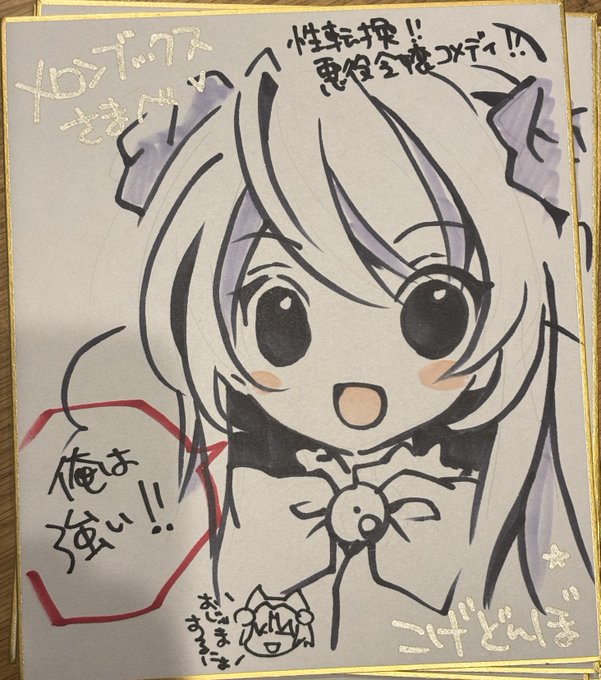 メロンブックス
さまへ♡
性転換!!
悪役令嬢コメディ!!
俺は
強い!!
おじゃま
するにゃ!
こげどんぼ